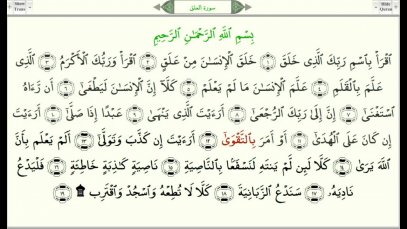 Show Trans
سورة العلق
Hide Quran
بِسْمِ اللَّهِ الرَّحْمَٰنِ الرَّحِيمِ
اقْرَأْ بِاسْمِ رَبِّكَ الَّذِي خَلَقَ ﴿١﴾ خَلَقَ الْإِنْسَٰنَ مِنْ عَلَقٍ ﴿٢﴾ اقْرَأْ وَرَبُّكَ الْأَكْرَمُ ﴿٣﴾ الَّذِي
عَلَّمَ بِالْقَلَمِ ﴿٤﴾ عَلَّمَ الْإِنْسَٰنَ مَا لَمْ يَعْلَمْ ﴿٥﴾ كَلَّا إِنَّ الْإِنْسَٰنَ لَيَطْغَىٰ ﴿٦﴾ أَن رَّءَاهُ
اسْتَغْنَىٰ ﴿٧﴾ إِنَّ إِلَىٰ رَبِّكَ الرُّجْعَىٰ ﴿٨﴾ أَرَءَيْتَ الَّذِي يَنْهَىٰ ﴿٩﴾ عَبْدًا إِذَا صَلَّىٰ ﴿١٠﴾ أَرَءَيْتَ
إِن كَانَ عَلَى الْهُدَىٰ ﴿١١﴾ أَوْ أَمَرَ بِالتَّقْوَىٰ ﴿١٢﴾ أَرَءَيْتَ إِن كَذَّبَ وَتَوَلَّىٰ ﴿١٣﴾ أَلَمْ يَعْلَم بِأَنَّ
اللَّهَ يَرَىٰ ﴿١٤﴾ كَلَّا لَئِن لَّمْ يَنتَهِ لَنَسْفَعًا بِالنَّاصِيَةِ ﴿١٥﴾ نَاصِيَةٍ كَٰذِبَةٍ خَاطِئَةٍ ﴿١٦﴾ فَلْيَدْعُ
نَادِيَهُ ﴿١٧﴾ سَنَدْعُ الزَّبَانِيَةَ ﴿١٨﴾ كَلَّا لَا تُطِعْهُ وَاسْجُدْ وَاقْتَرِب ۩ ﴿١٩﴾